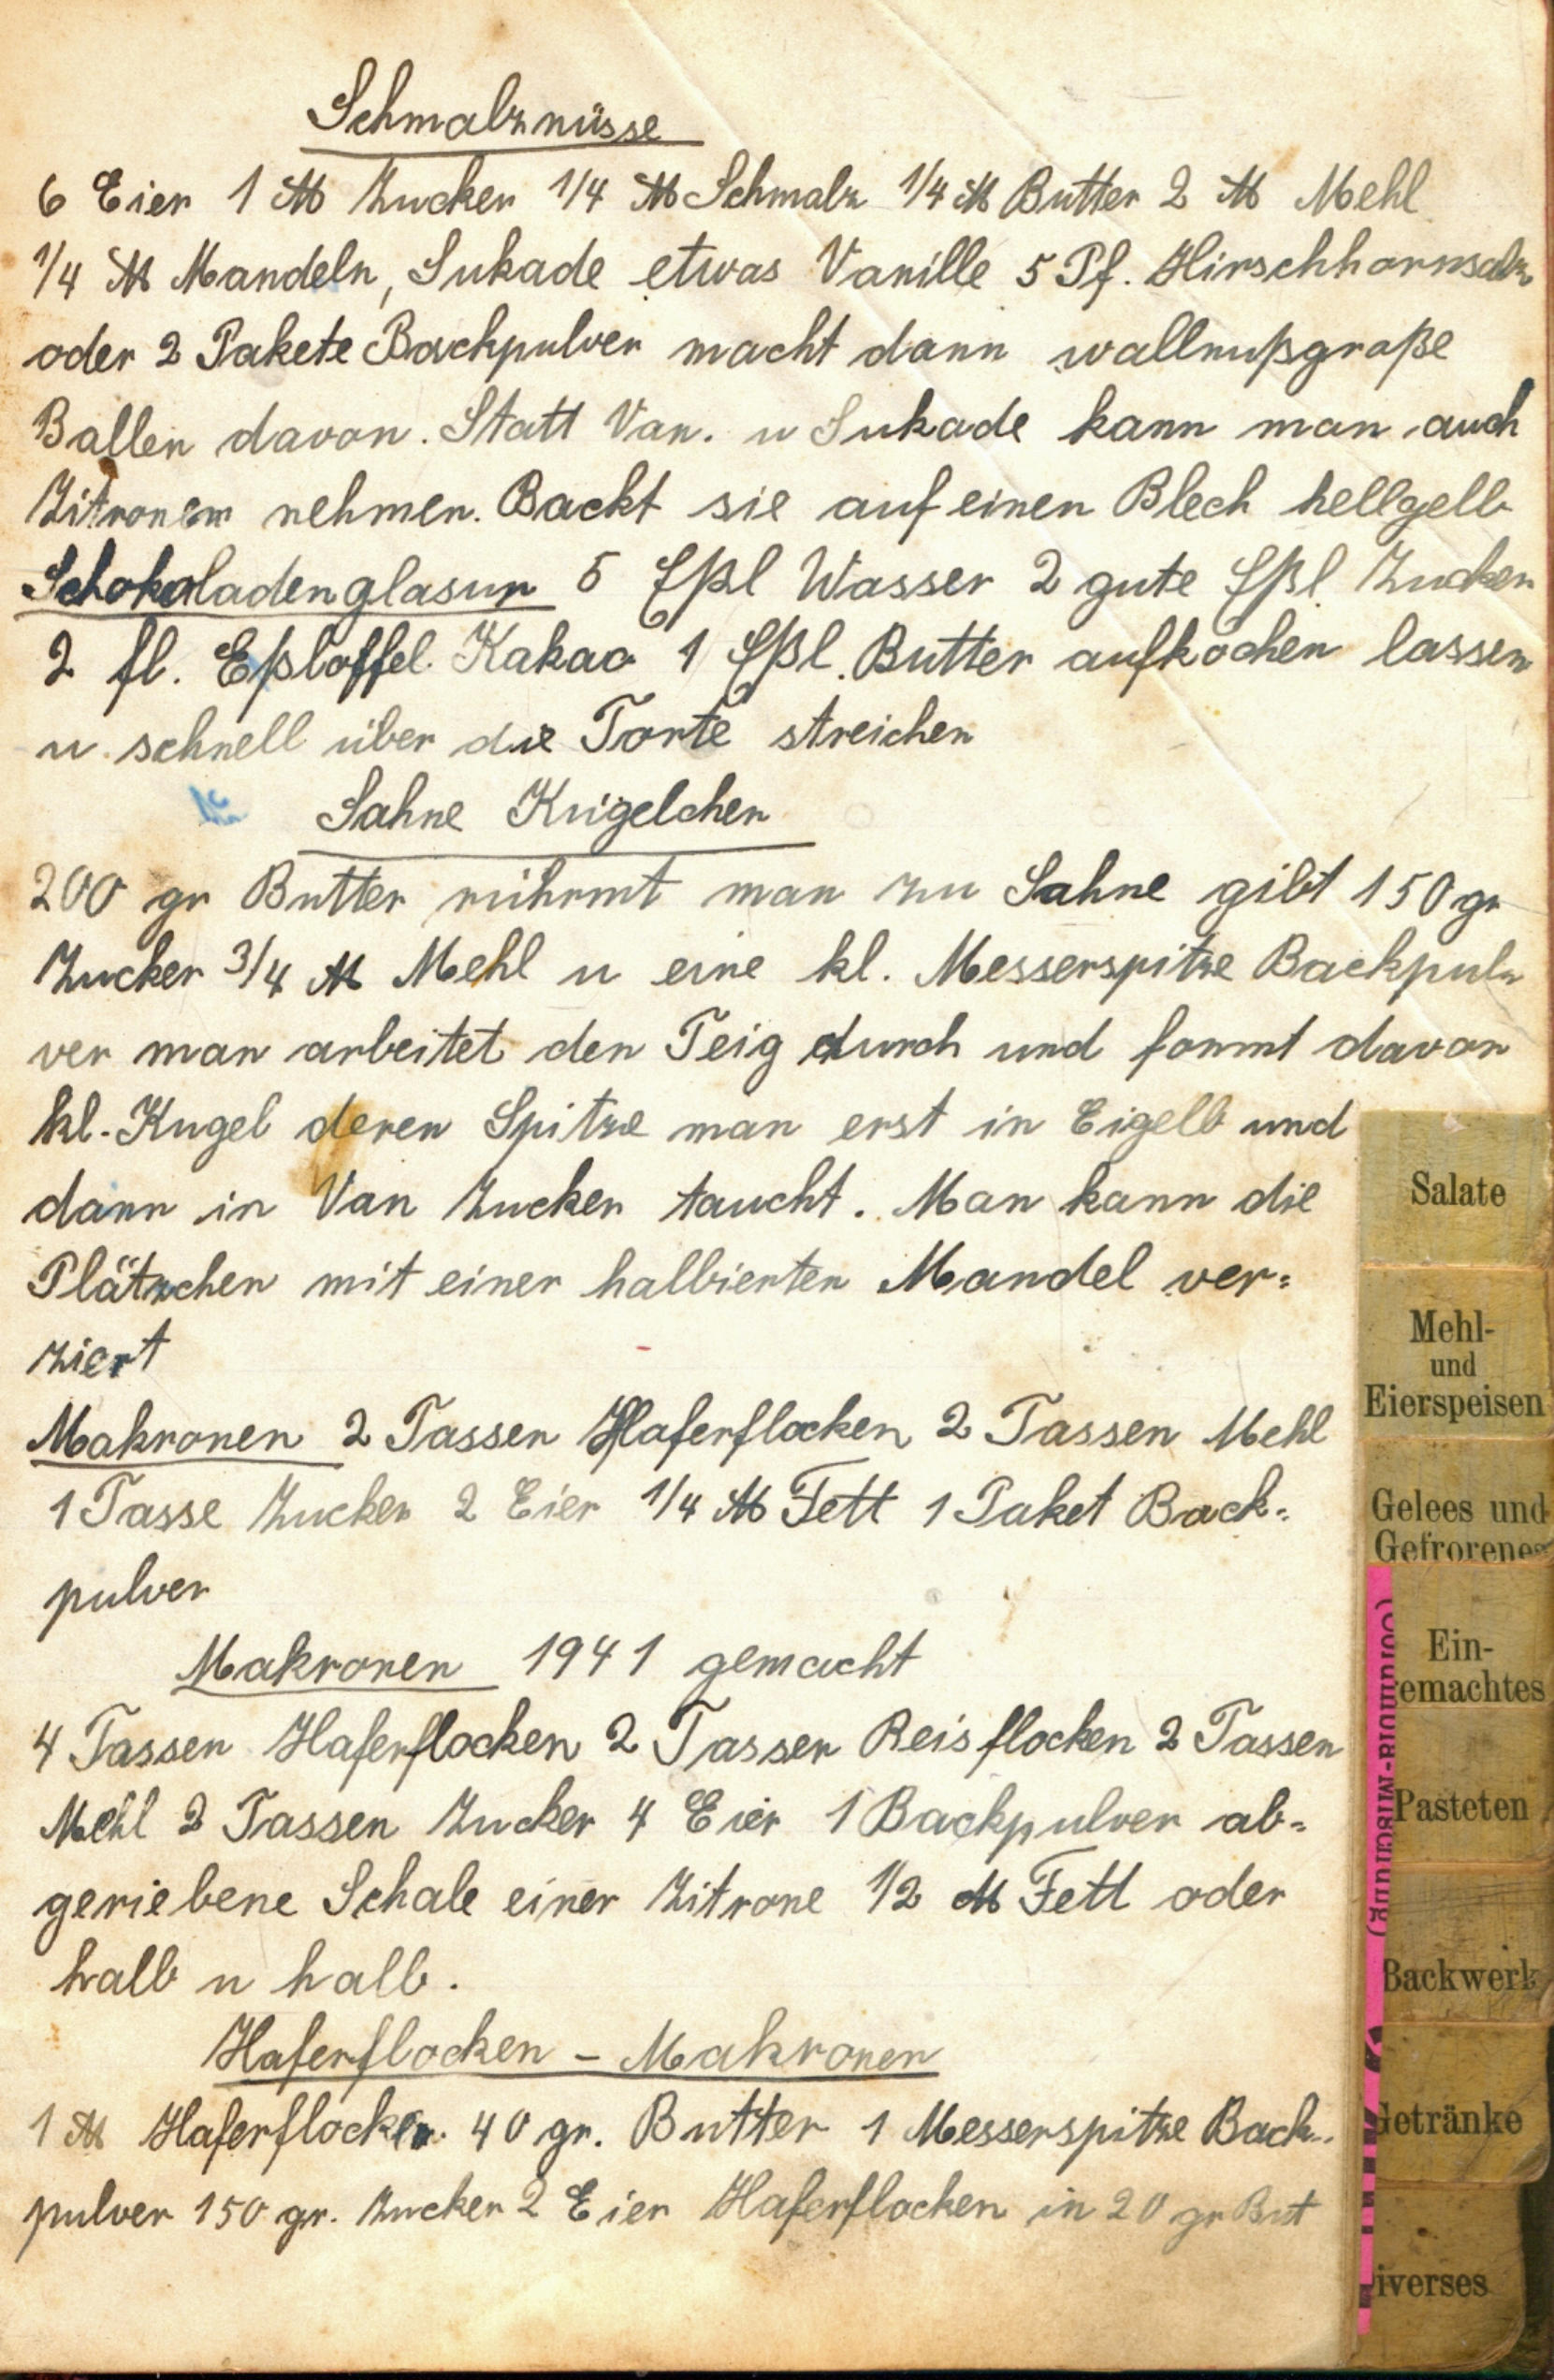 Schmalznüsse
6 Eier 1 ℔ Zucker 1/4 ℔ Schmalz 1/4 ℔ Butter 2 ℔ Mehl
1/4 ℔ Mandeln, Sukade etwas Vanille 5 Pf. Hirschhornsalz
oder 2 Pakete Backpulver macht dann wallnußgroße
Ballen davon. Statt Van. u Sukade kann man auch
Zitronen nehmen. Backt sie auf einen Blech hellgelb
Schokoladenglasur 5 Eßl Wasser 2 gute Eßl Zucker
2 fl. Eßloffel Kakao 1 Eßl. Butter aufkochen lassen
u schnell über die Torte streichen
Sahne Kügelchen
200 gr Butter rührmt man zu Sahne gibt 150 gr
Zucker 3/4 ℔ Mehl u eine kl. Messerspitze Backpul-
ver man arbeitet den Teig durch und formt davon
kl. Kugel deren Spitze man erst in Eigelb und
dann in Van Zucker taucht. Man kann die
Plätzchen mit einer halbierten Mandel ver=
ziert
Makronen 2 Tassen Haferflocken 2 Tassen Mehl
1 Tasse Zucker 2 Eier 1/4 ℔ Fett 1 Paket Back=
pulver
Makronen 1941 gemacht
4 Tassen Haferflocken 2 Tassen Reisflocken 2 Tassen
Mehl 2 Tassen Zucker 4 Eier 1 Backpulver ab=
geriebene Schale einer Zitrone 1/2 ℔ Fett oder
halb u halb.
Haferflocken - Makronen
1 ℔ Haferflocken 40 gr. Butter 1 Messerspitze Back-
pulver 150 gr. Zucker 2 Eier Haferflocken in 20 gr But
Salate
Mehl-
und
Eierspeisen
Gelees und
Gefrorenes
Ein-
emachtes
Pasteten
Backwerk
Getränke
iverses